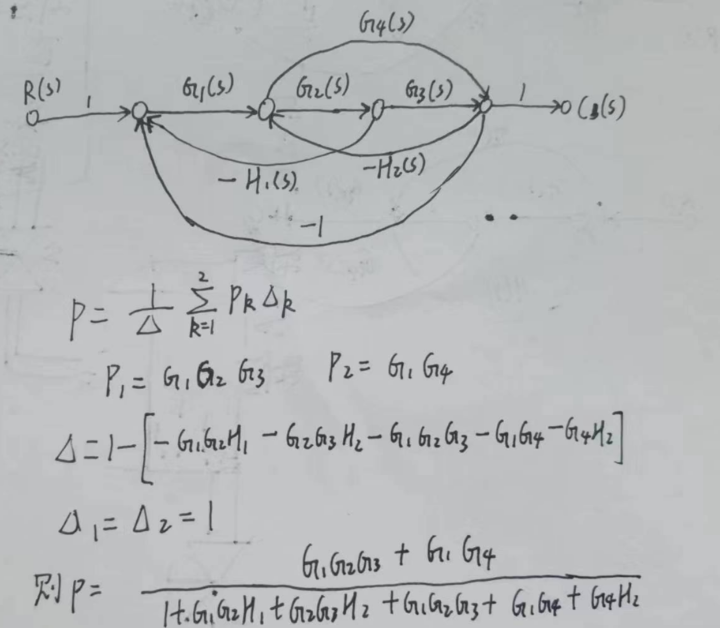 G4(s)
R(s) 1 G1(s) G2(s) G3(s) 1 C(s)
-H1(s) -H2(s)
-1
P = 1/Δ ∑_{k=1}^{2} Pk Δk
P1 = G1 G2 G3 P2 = G1 G4
Δ = 1 - [-G1G2H1 - G2G3H2 - G1G2G3 - G1G4 - G4H2]
Δ1 = Δ2 = 1
则 P = (G1G2G3 + G1G4) / (1 + G1G2H1 + G2G3H2 + G1G2G3 + G1G4 + G4H2)